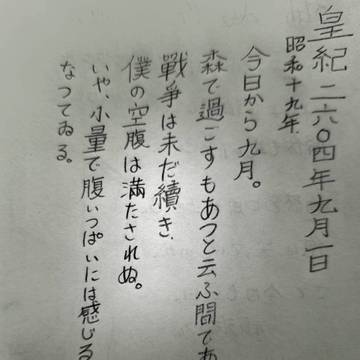 皇紀二六〇四年九月一日
昭和十九年.
今日から九月。
森で過ごすもあつと云ふ間であ
戰爭は未だ續き.
僕の空腹は満たされぬ。
いや、小量で腹いつぱいには感じる
なつてゐる。